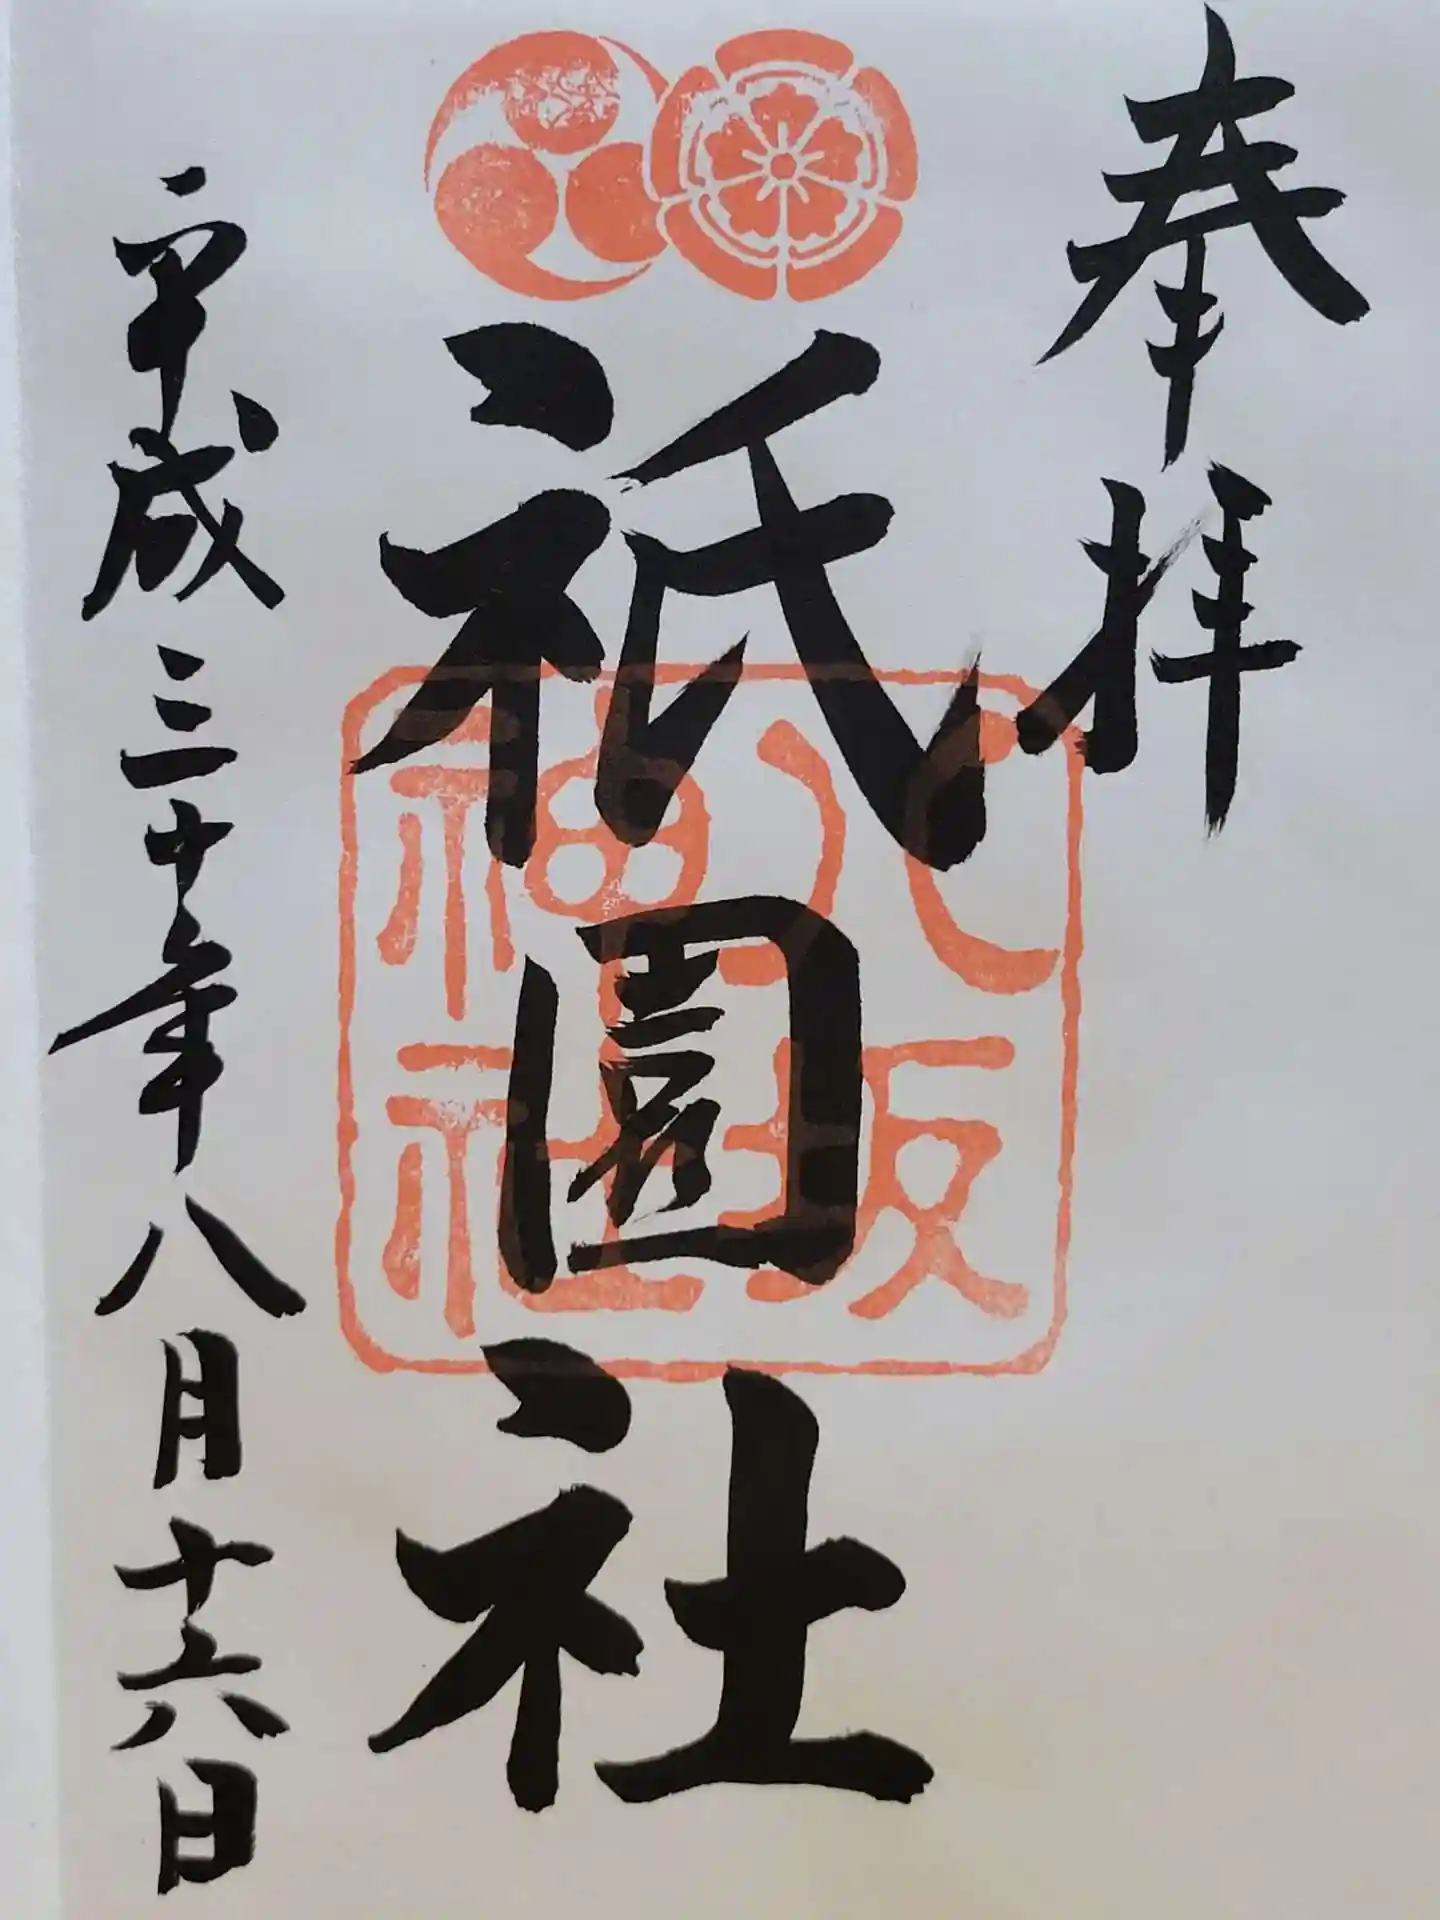 奉拝
祇園社
八坂
神社
平成三十年八月十六日